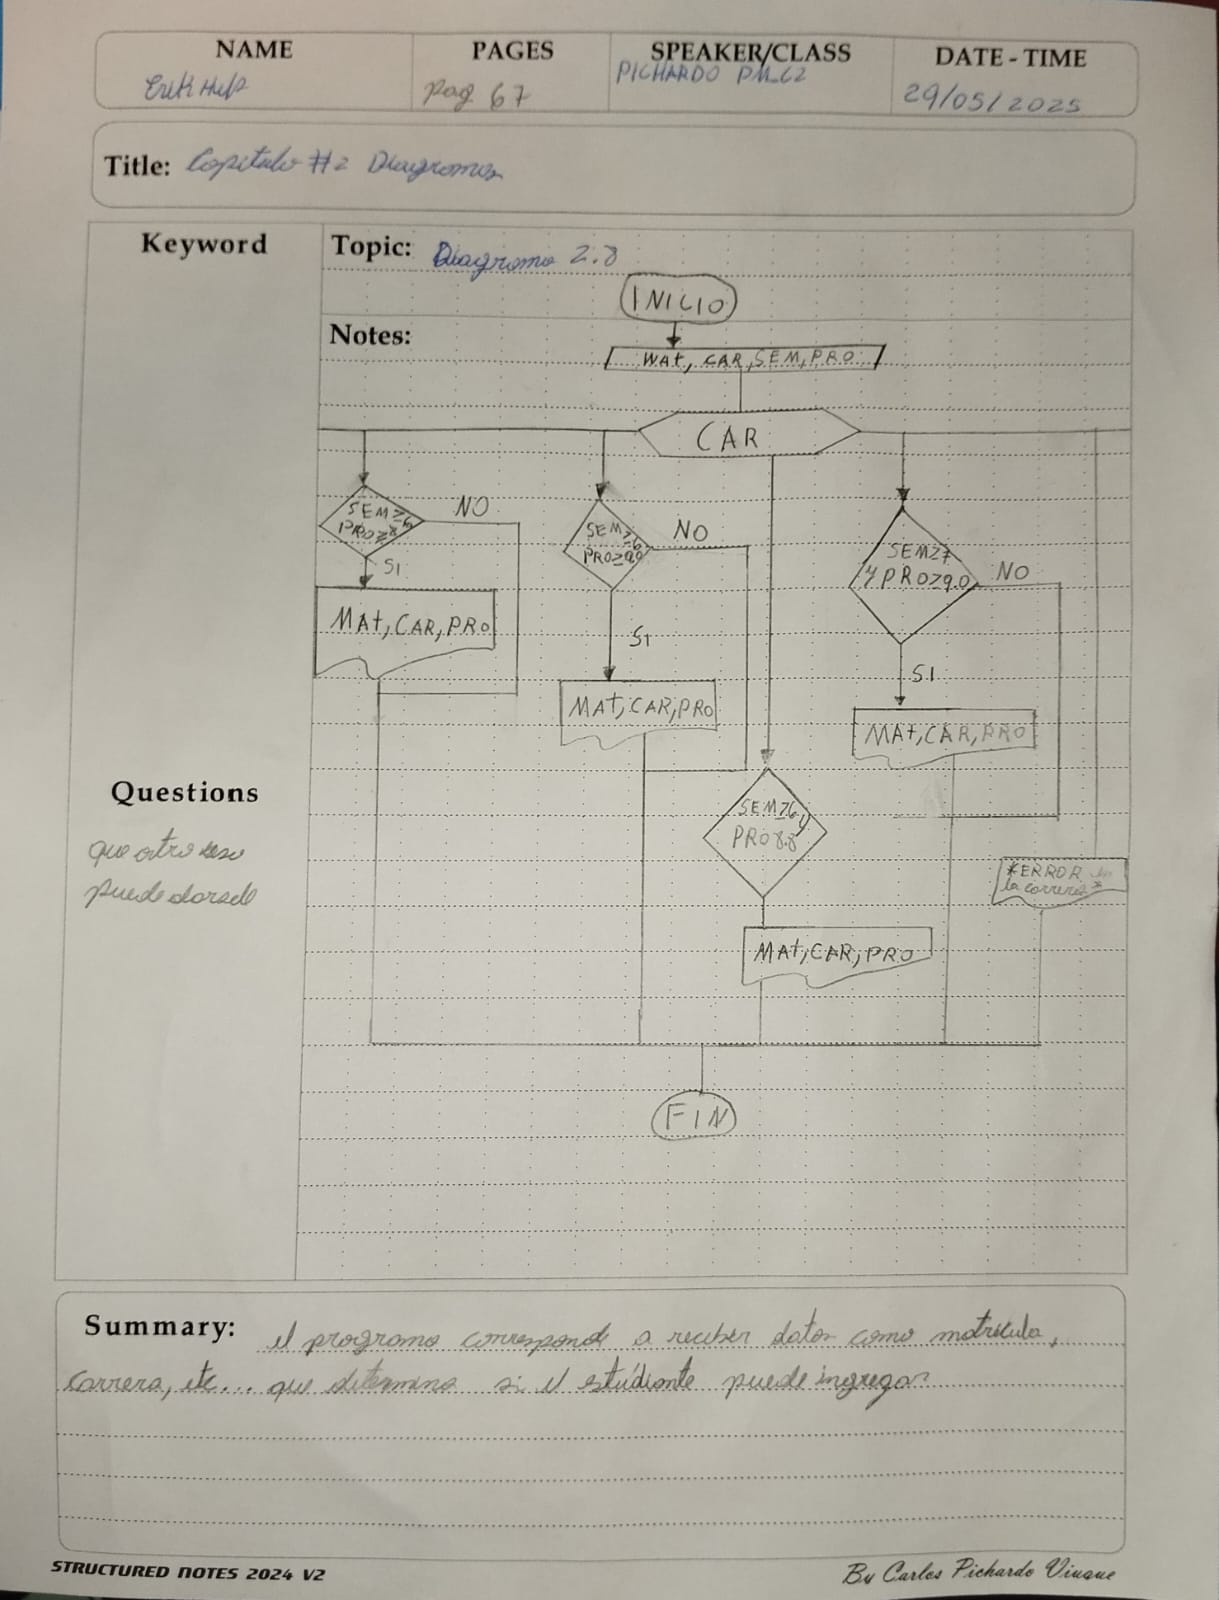 NAME
PAGES
SPEAKER/CLASS
DATE - TIME
pag 67
PICHARDO
29/05/2025
Title: Capitulo #2 Diagramas
Keyword
Topic: Diagrama 2.8
INICIO
Notes:
MAT, CAR, SEM, PRO
CAR
SEM≥6
PRO≥8.5
NO
SI
MAT, CAR, PRO
SEM≥6
PRO≥9.0
NO
SI
MAT, CAR, PRO
SEM≥7
y PRO≥9.0
NO
SI
MAT, CAR, PRO
SEM≥6 y
PRO 8.8
MAT, CAR, PRO
*ERROR en
la carrera*
FIN
Questions
que otro
puede
Summary: el programa corresponde a recibir datos como matricula,
carrera, etc... que determina si el estudiante puede ingregar
STRUCTURED NOTES 2024 V2
By Carlos Pichardo Viuque